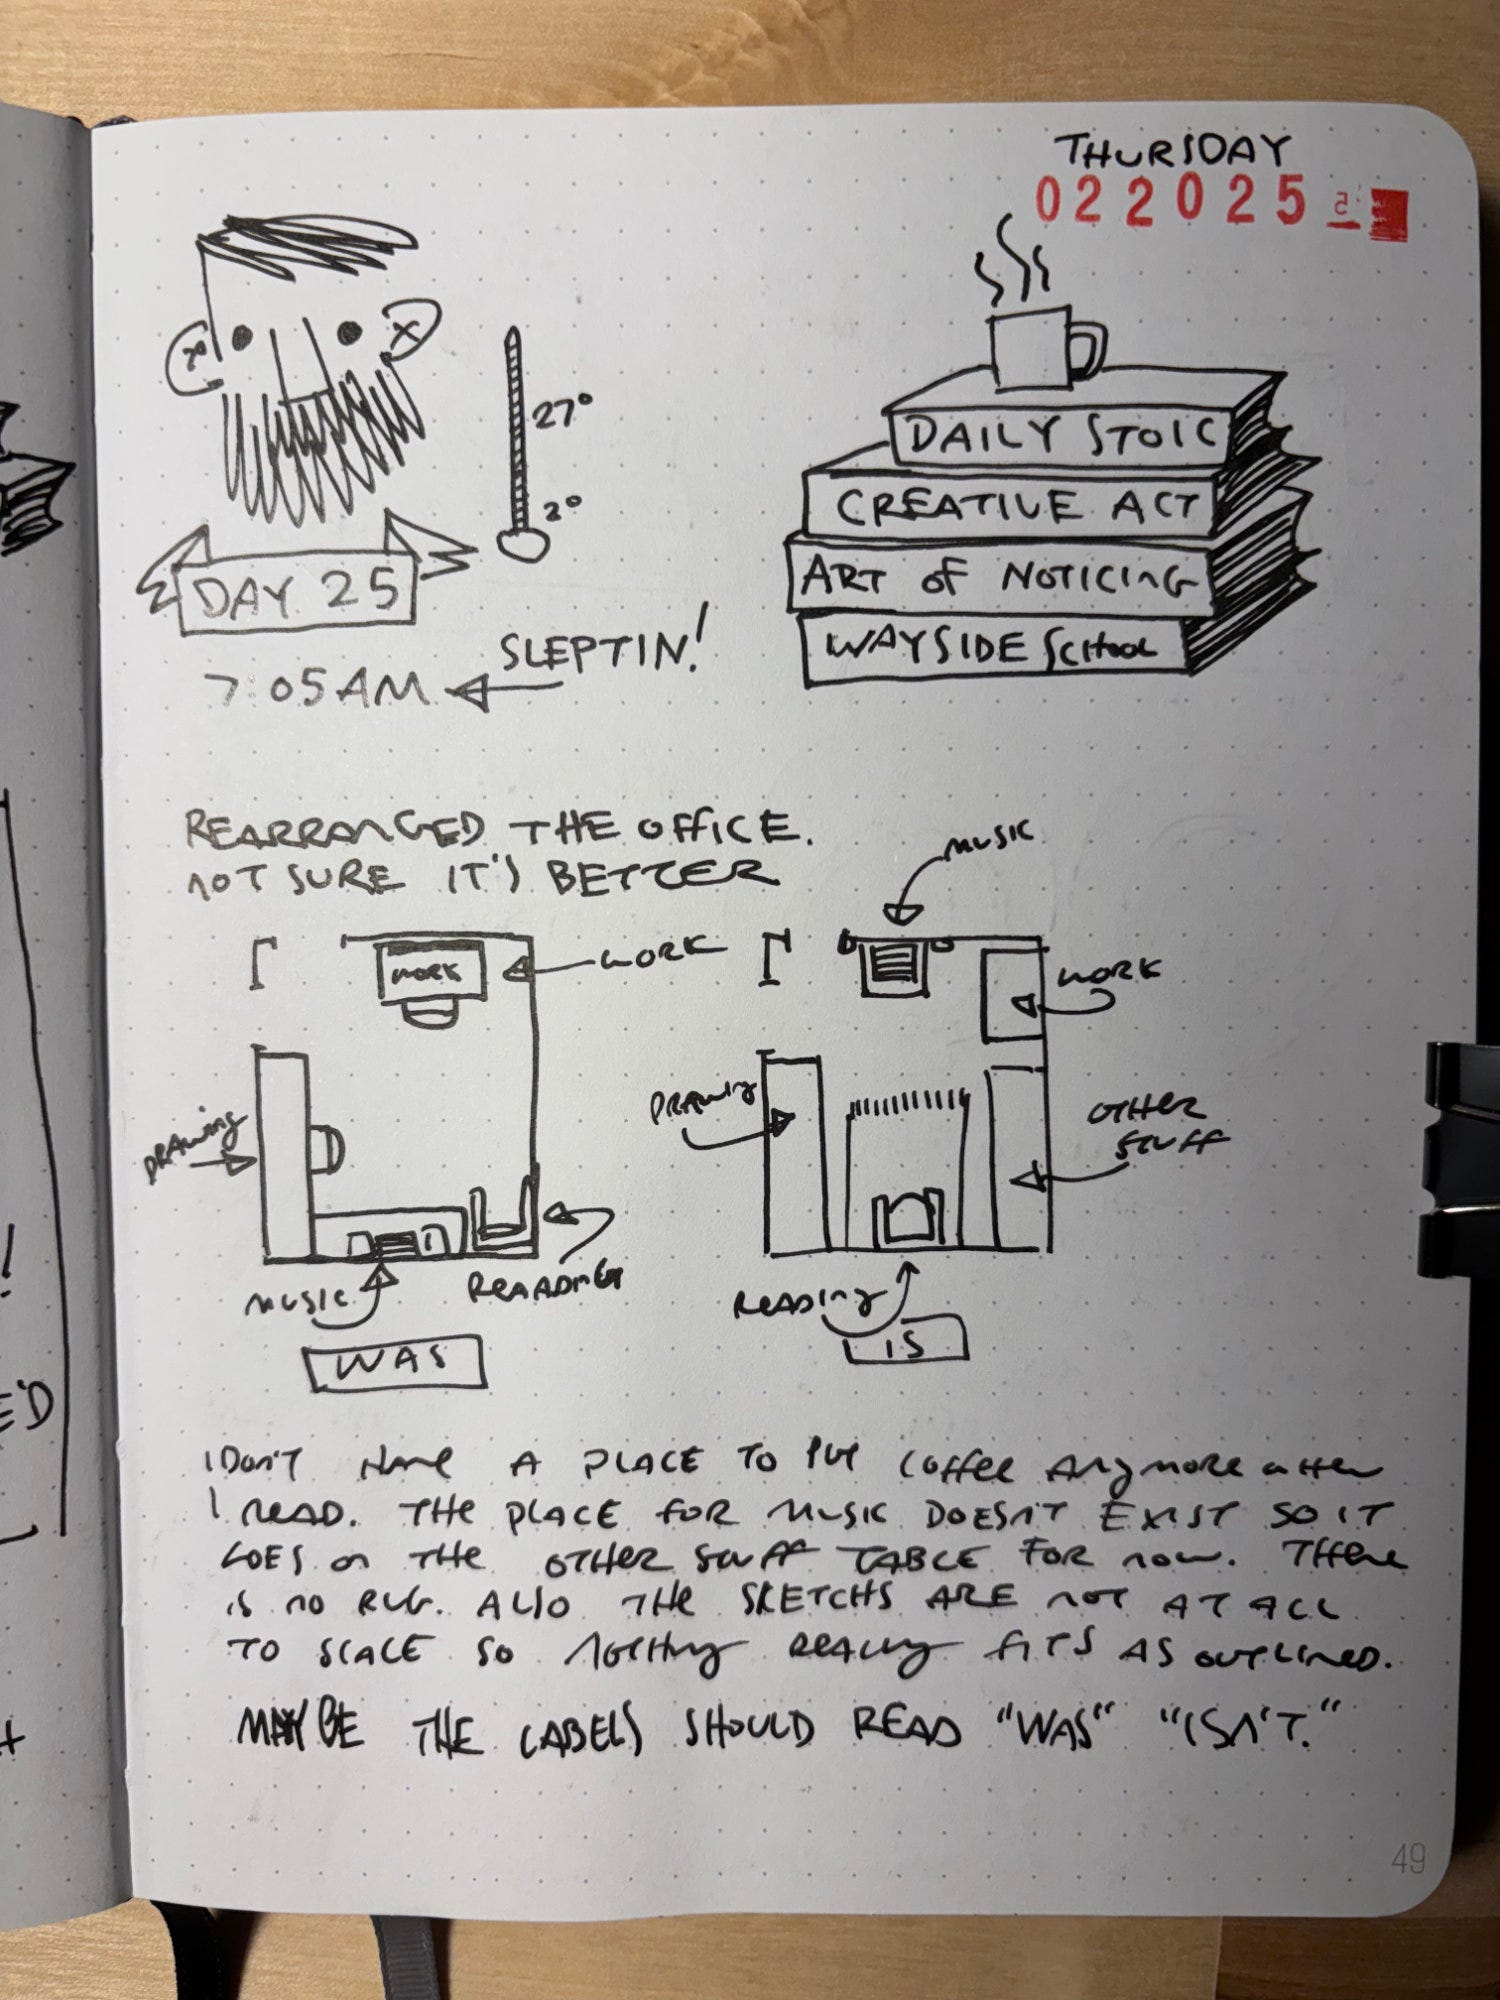 THURSDAY
022025
27°
2°
DAY 25
SLEPTIN!
7:05AM
DAILY STOIC
CREATIVE ACT
ART OF NOTICING
WAYSIDE SCHOOL
REARRANGED THE OFFICE.
NOT SURE IT'S BETTER
WORK
WORK
DRAWING
MUSIC
REAADING
WAS
MUSIC
WORK
DRAWING
OTHER
STUFF
READING
IS
I DON'T HAVE A PLACE TO PUT COFFEE ANYMORE WHEN
I READ. THE PLACE FOR MUSIC DOESN'T EXIST SO IT
GOES ON THE OTHER STUFF TABLE FOR NOW. THERE
IS NO RUG. ALSO THE SKETCHS ARE NOT AT ALL
TO SCALE SO NOTHING REALLY FITS AS OUTLINED.
MAYBE THE LABELS SHOULD READ "WAS" "ISN'T."
49
!
E'D